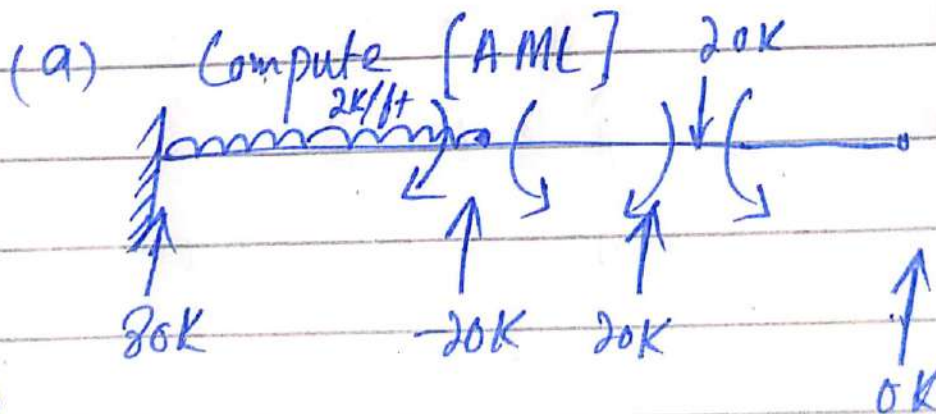 (a) Compute [AML] 20K
2K/ft
80K -20K 20K
0K